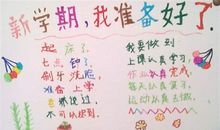 新学期,我准备好了
起床了
七点钟了
刷牙洗脸
准备上学
老师说过
不可以迟到
我要做到
上课认真学习
作业认真完成
每天认真复习
运动认真去做